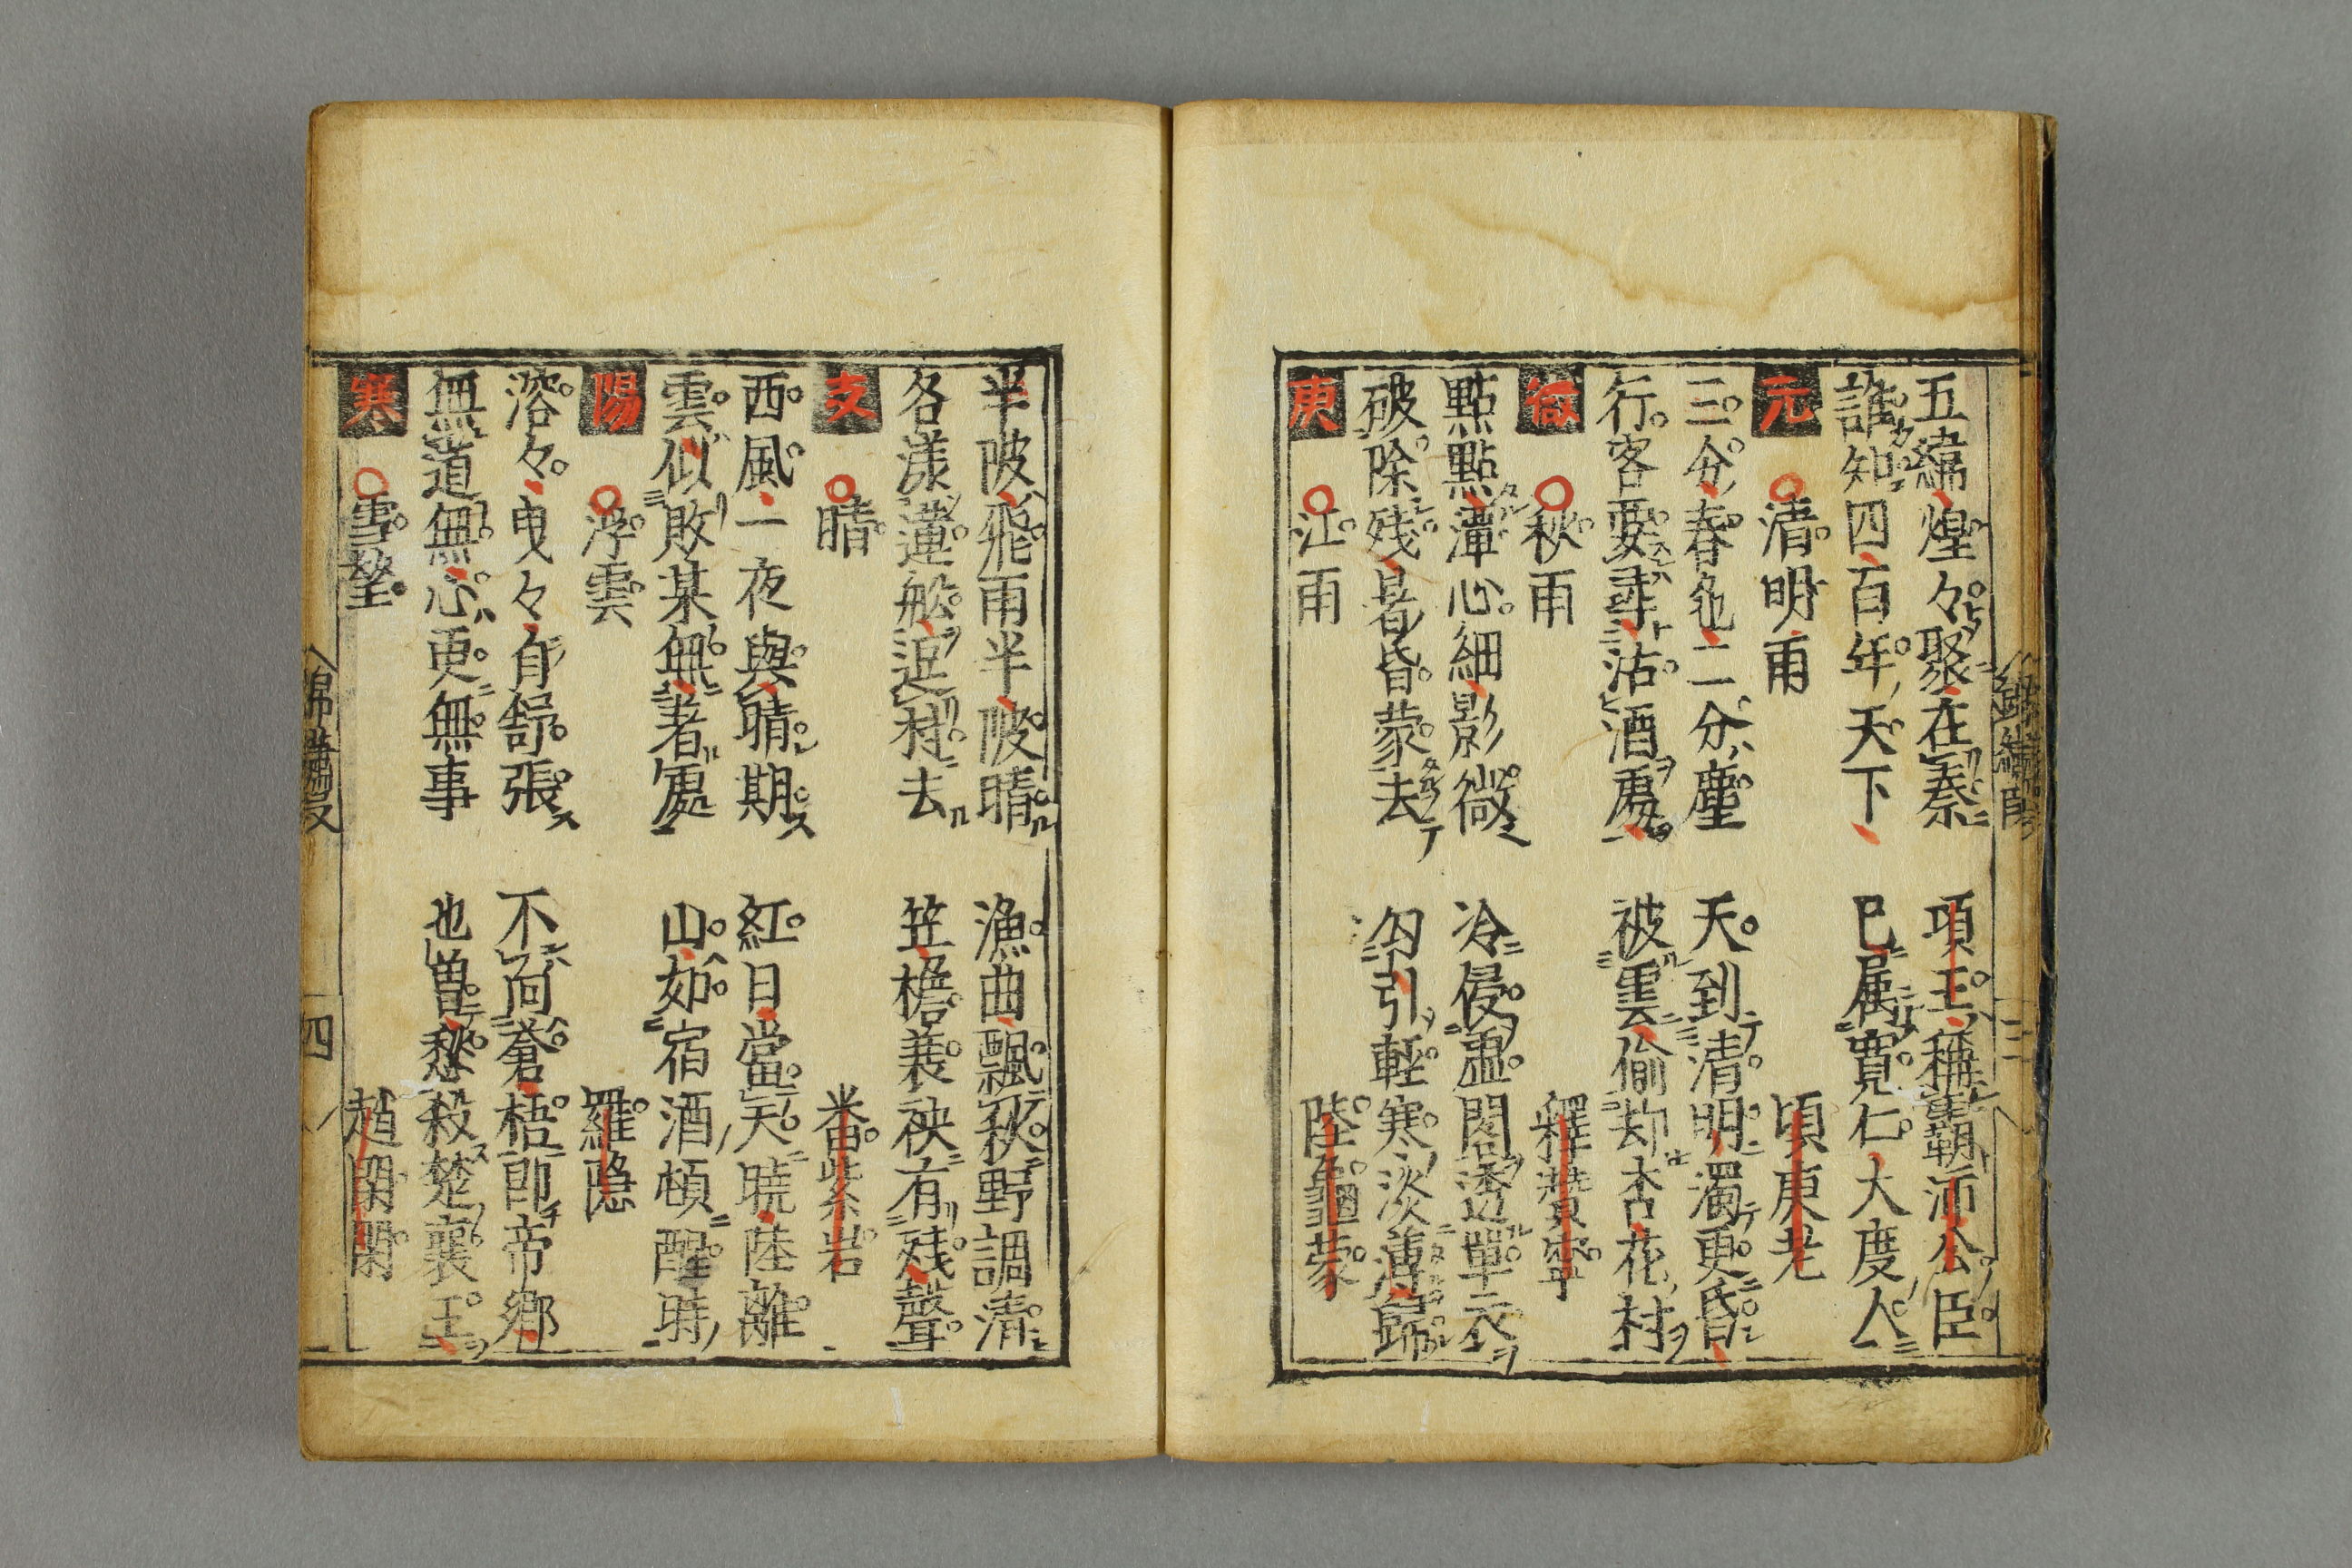 五緯煌々聚在秦　項王稱霸沛公臣
誰知四百年天下　已属寛仁大度人
元　清明雨　頃東老
三分春色二分塵　天到清明濁更昏
行客要尋沽酒處　被雲偷却杏花村
微　秋雨　釋賛寧
點點潭心細影微　冷侵虛閣透單衣
破除残暑昏蒙去　勾引軽寒淡薄歸
庚　江雨　陸龜蒙
半陂飛雨半陂晴　漁曲飄秋野調清
各漾蓮船逗村去　笠檐蓑袂有残聲
支　晴　米畨紫岩
西風一夜與晴期　紅日當天暁陸離
雲似敗某無著處　山如宿酒頓醒時
陽　浮雲　羅隐
溶々曳々自舒張　不向蒼梧即帝郷
無道無心更無事　也曽愁殺楚襄王
寒　雪  趙閑閑
四